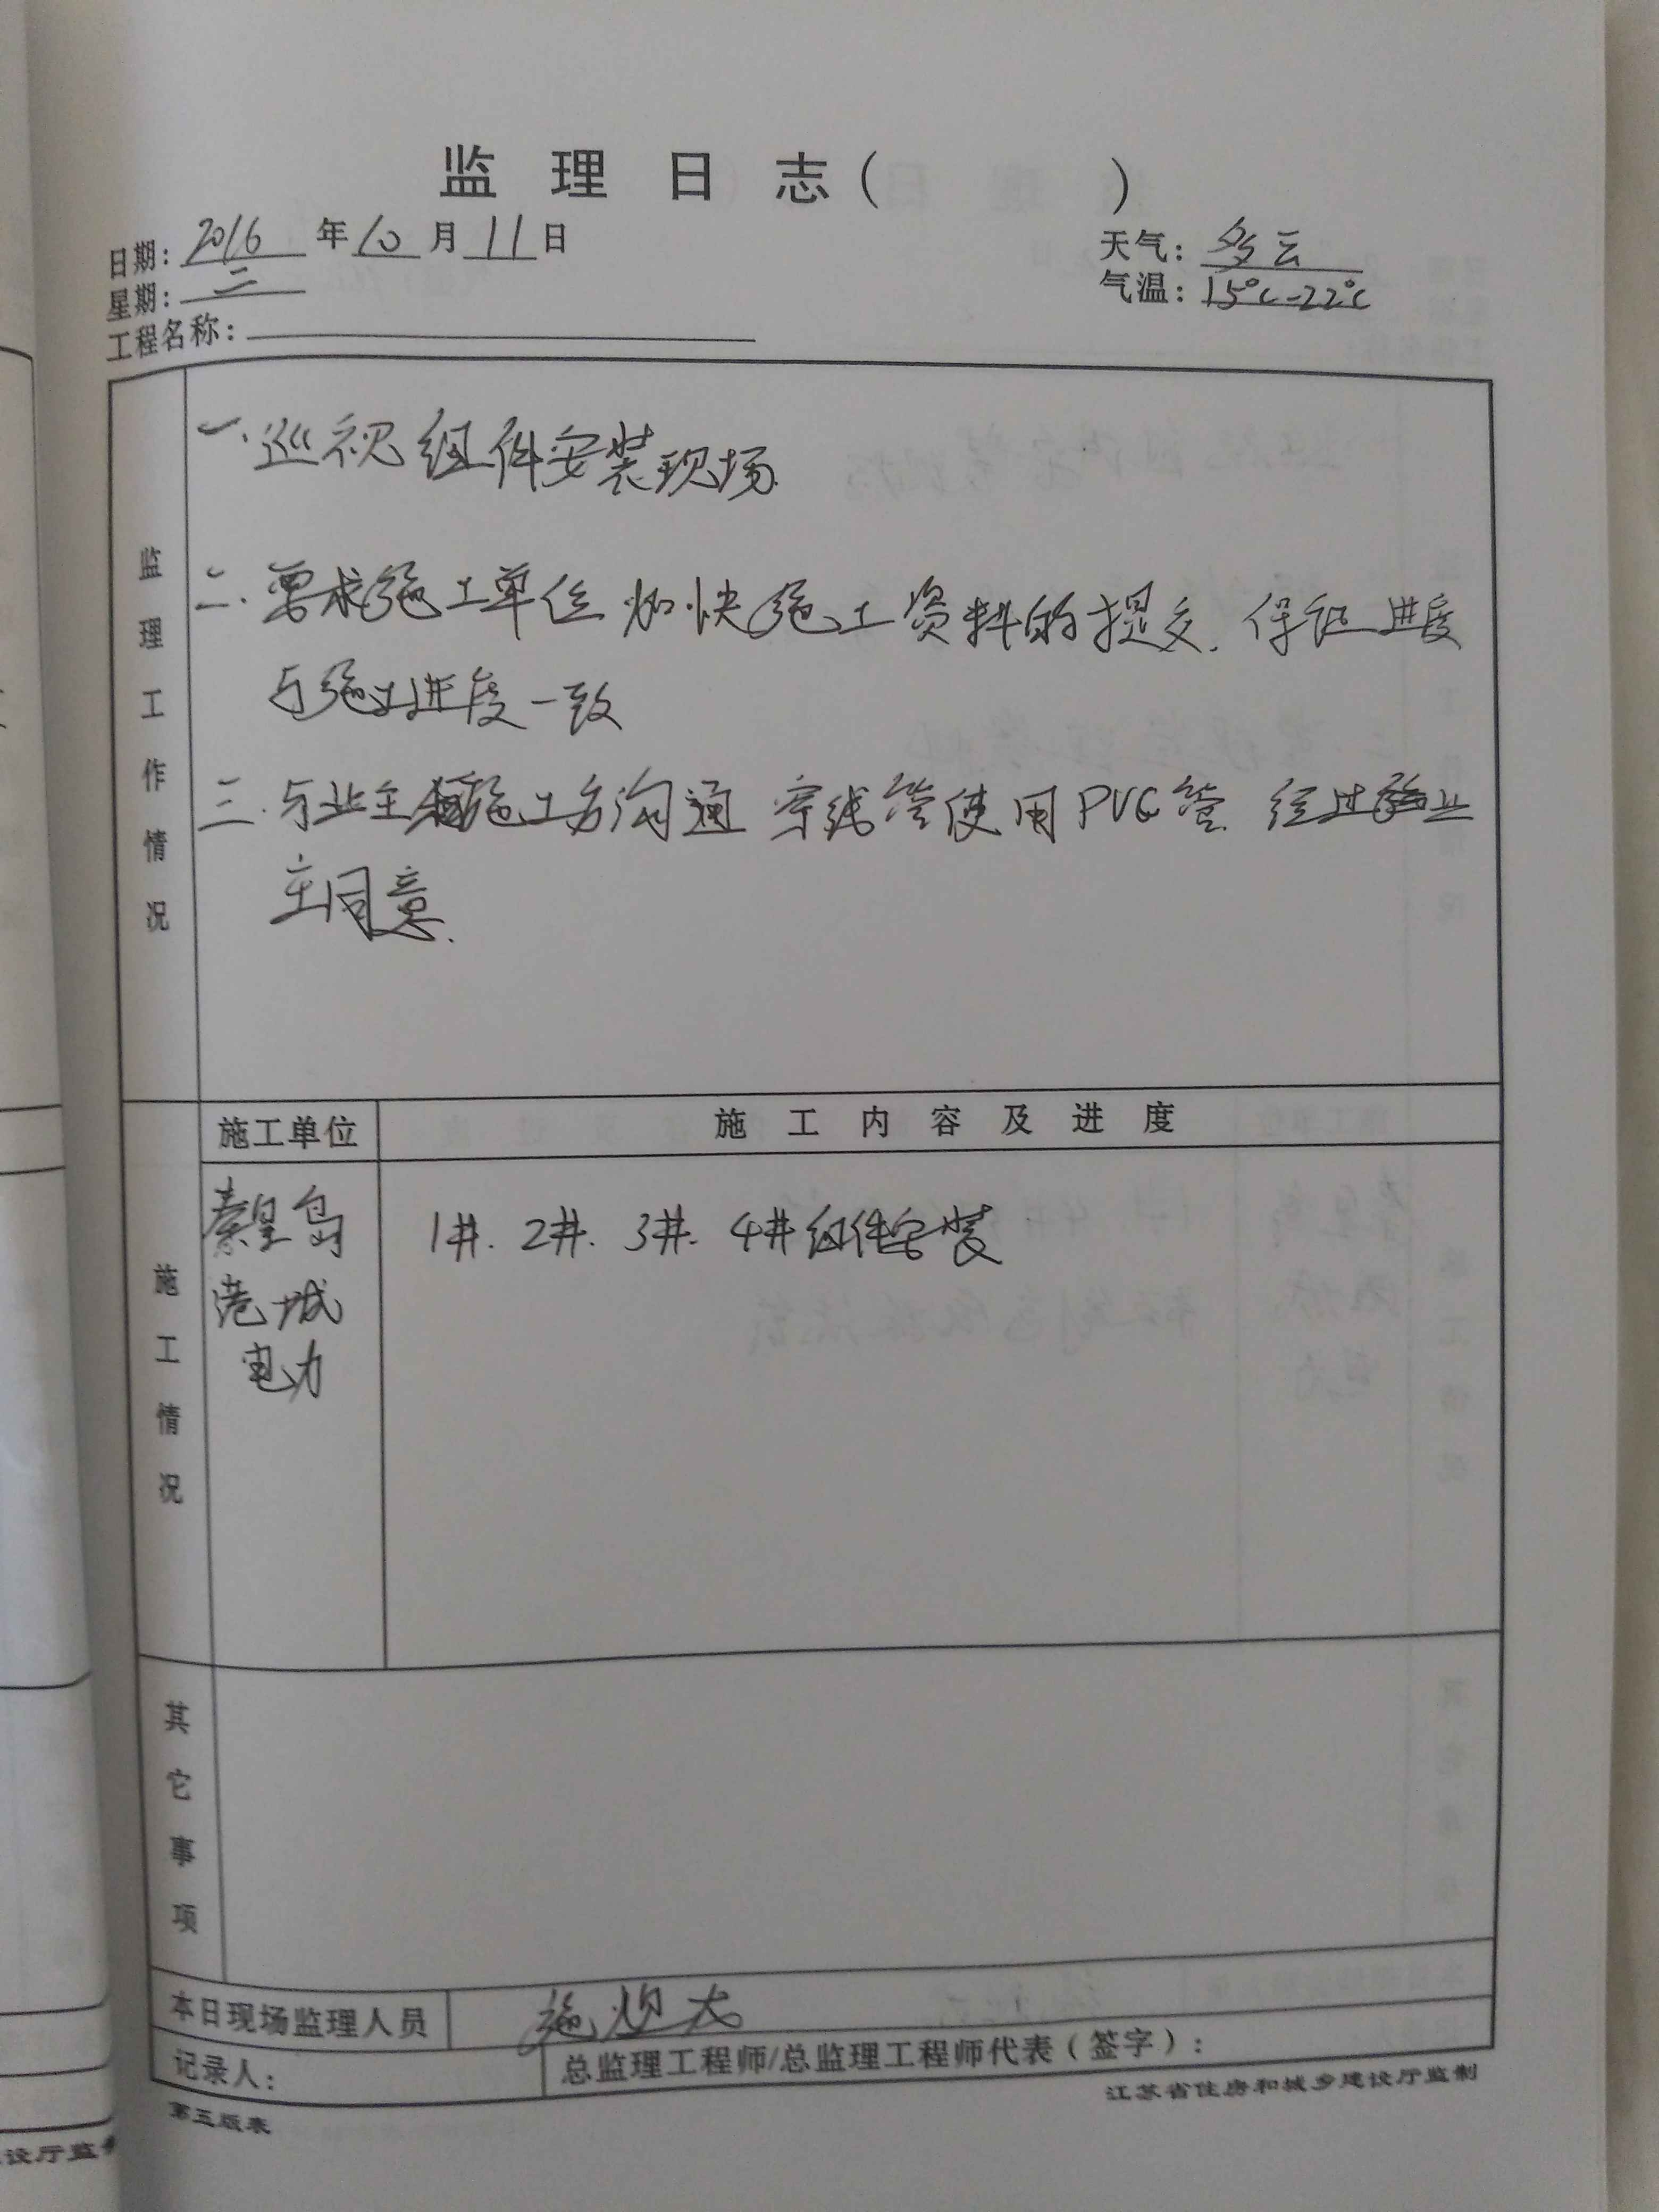 监 理 日 志（ ）
日期：2016 年 10 月 11 日
天气：多云
星期：二
气温：15℃-22℃
工程名称：
监理工作情况
一.巡视组件安装现场
二.要求施工单位加快施工资料的提交.保证进度
与施工进度一致
三.与业主施工方沟通 穿线管使用PVC管.经过业
主同意.
施工情况
施工单位
施 工 内 容 及 进 度
秦皇岛
港城
电力
1#. 2#. 3#. 4#组件安装
其它事项
本日现场监理人员
记录人：
总监理工程师/总监理工程师代表（签字）：
第五版表
江苏省住房和城乡建设厅监制
设厅监制